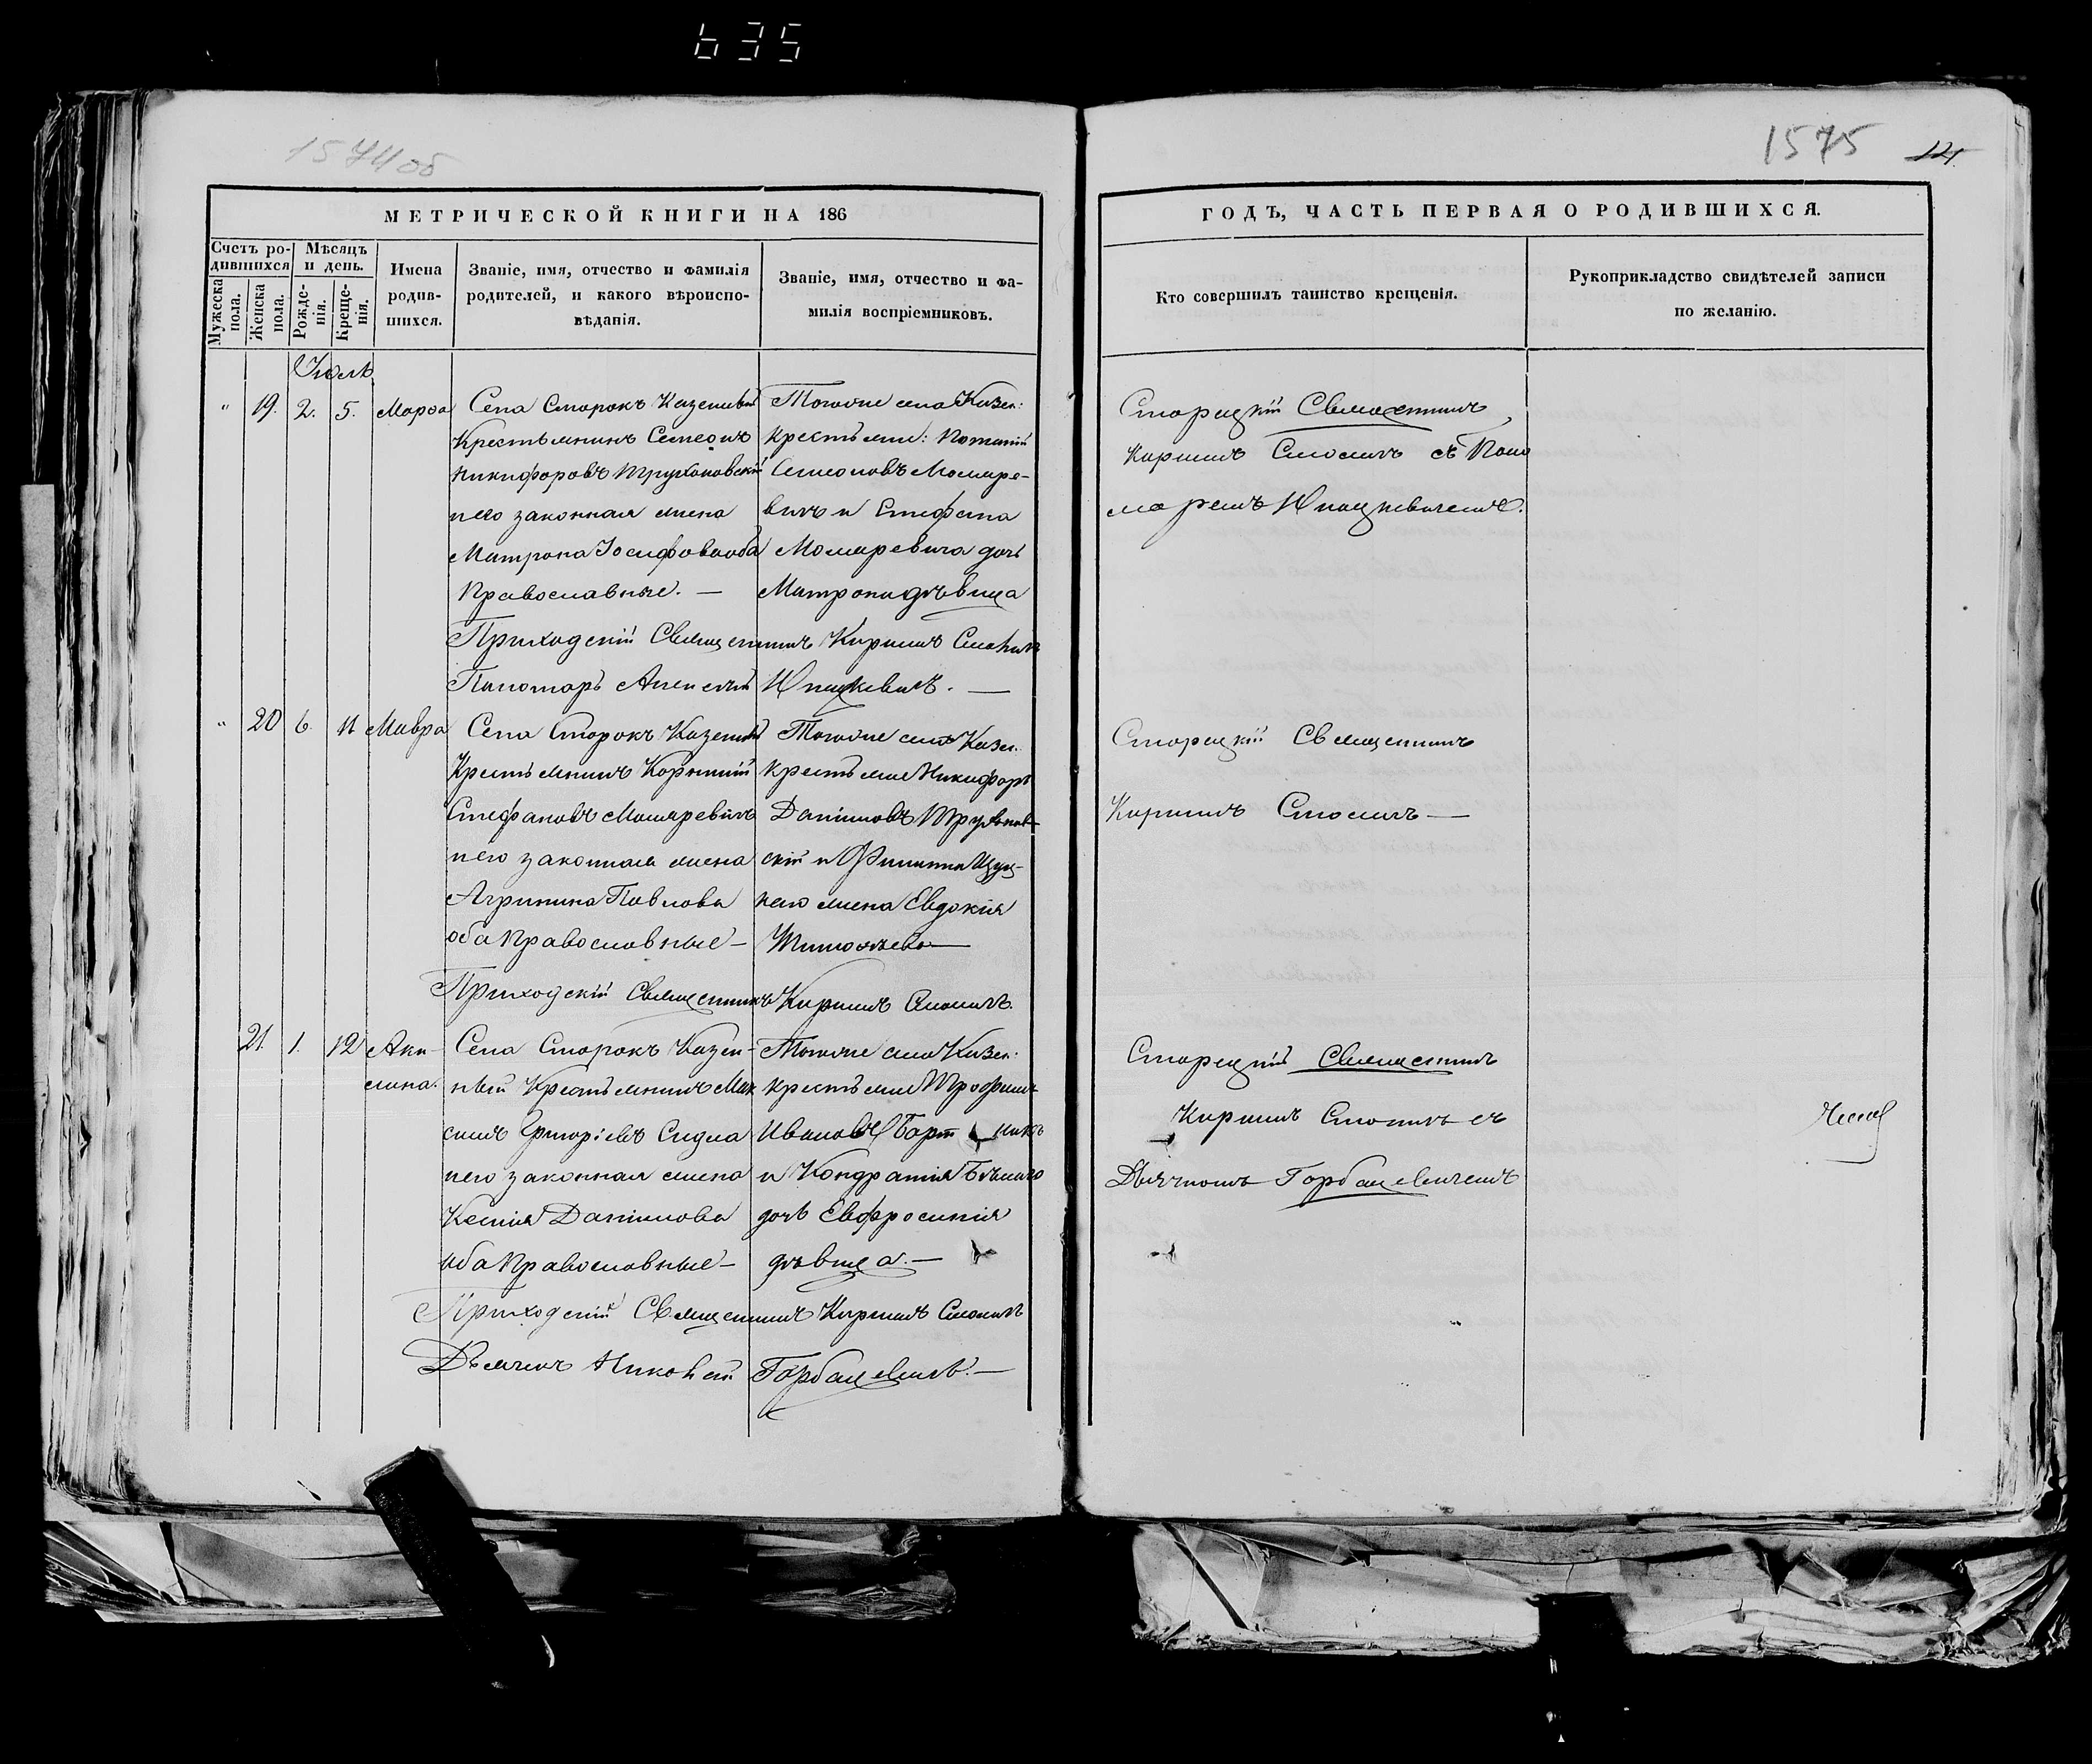 635
1574об
1575
121
МЕТРИЧЕСКОЙ КНИГИ НА 186
ГОДЪ, ЧАСТЬ ПЕРВАЯ О РОДИВШИХСЯ.
Счетъ родившихся
Мѣсяцъ и день.
Мужеска пола.
Женска пола.
Рожденія.
Крещенія.
Имена родившихся.
Званіе, имя, отчество и фамилія
родителей, и какого вѣроисповѣданія.
Званіе, имя, отчество и фамилія воспріемниковъ.
Кто совершилъ таинство крещенія.
Рукоприкладство свидѣтелей записи
по желанію.
Июль
" 19. 2. 5. Марѳа
Села Сторокъ Казенный
Крестьянинъ Семеонъ
Никифоровъ Трухоновскій
и его законная жена
Матрона Іосифова оба
Православные. —
Тогоже села Казен:
крестьяне: Потапій
Семеоновъ Момаре-
вичъ и Стефана
Момаревича дочь
Матрона дѣвица
Сторицкій Священникъ
Кирилъ Смоличъ съ Поно
маремъ
Приходскій Священникъ Кирилъ Смоличъ
Пономарь Алексѣй
" 20 6. 11 Мавра
Села Сторокъ Казенный
Крестьянинъ Корнилій
Стефановъ Момаревичъ
и его законная жена
Агрипина Павлова
оба Православные —
Тогоже села Казен.
крестьяне Никифоръ
Даніиловъ Трухонов-
скій и Филиппа
жена Евдокія
Тимоѳеева —
Сторицкій Священникъ
Кирилъ Смоличъ —
Приходскій Священникъ Кирилъ Смоличъ.
21. 1. 12 Аки-
лина.
Села Сторокъ Казен-
ный Крестьянинъ Мак
симъ Григоріевъ
и его законная жена
Ксенія Даніилова
оба Православные —
Тогоже села Казен:
крестьяне Трофимъ
Ивановъ
и Кондратія
дочь Евфросинія
дѣвица. —
Сторицкій Священникъ
Кирилъ Смоличъ съ
Дьячкомъ Горбацевичемъ
Приходскій Священникъ Кирилъ Смоличъ
Дьячекъ Николай Горбацевичъ. —